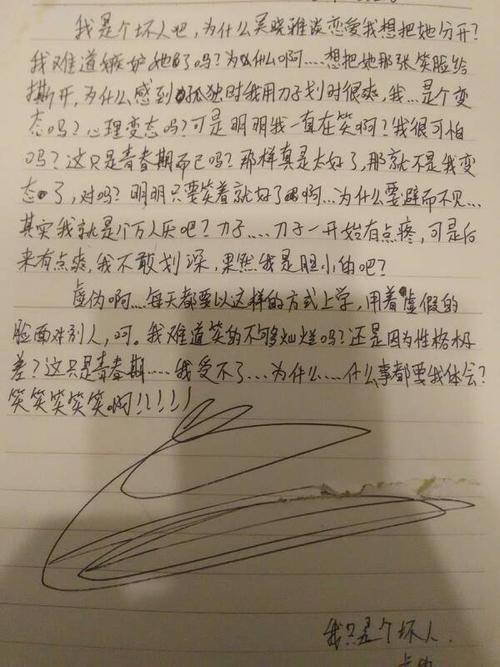 我是个坏人吧，为什么吴晓雅谈恋爱我想把她分开？
我难道嫉妒她了吗？为什么啊....想把她那张笑脸给
撕开，为什么感到孤独时我用刀子划时很爽，我...是个变
态吗？心理变态吗？可是明明我一直在笑啊？我很可怕
吗？这只是青春期而已吗？那样真是太好了，那就不是我变
态了，对吗？明明只要笑着就好了啊...为什么要避而不见...
其实我就是个万人厌吧？刀子....刀子一开始有点疼，可是后
来有点爽，我不敢划深，果然我是胆小的吧？
虚伪啊....每天都要以这样的方式上学，用着虚假的
脸面对别人，呵。我难道笑的不够灿烂吗？还是因为性格极
差？这只是青春期.....我受不了....为什么.....什么事都要我体会？
笑笑笑笑笑啊！！！！！
我只是个坏人.